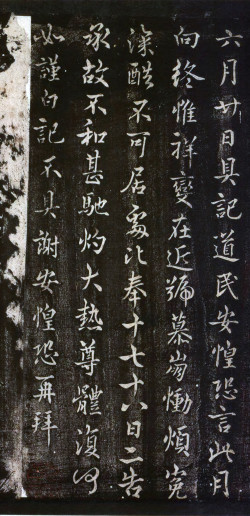 六月廿日具記道民安惶恐言此月
向終惟祥變在近號慕崩慟煩冤
深酷不可居處比奉十七十八日二告
承故不和甚馳灼大熱尊體復何
如謹白記不具謝安惶恐再拜